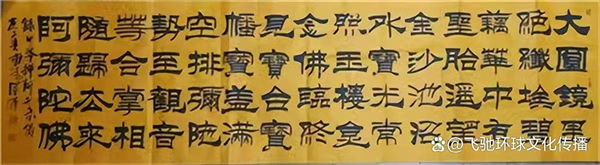 大圓鏡里
絕纖埃碧
藕華中有
聖胎遥望
金沙池沼
外寶光常
照玉樓臺
念佛臨終
見寶台寶
幡寶蓋滿
空排彌陀
勢至觀音
等合掌相
隨歸去來
阿彌陀佛
@飞驰环球文化传播